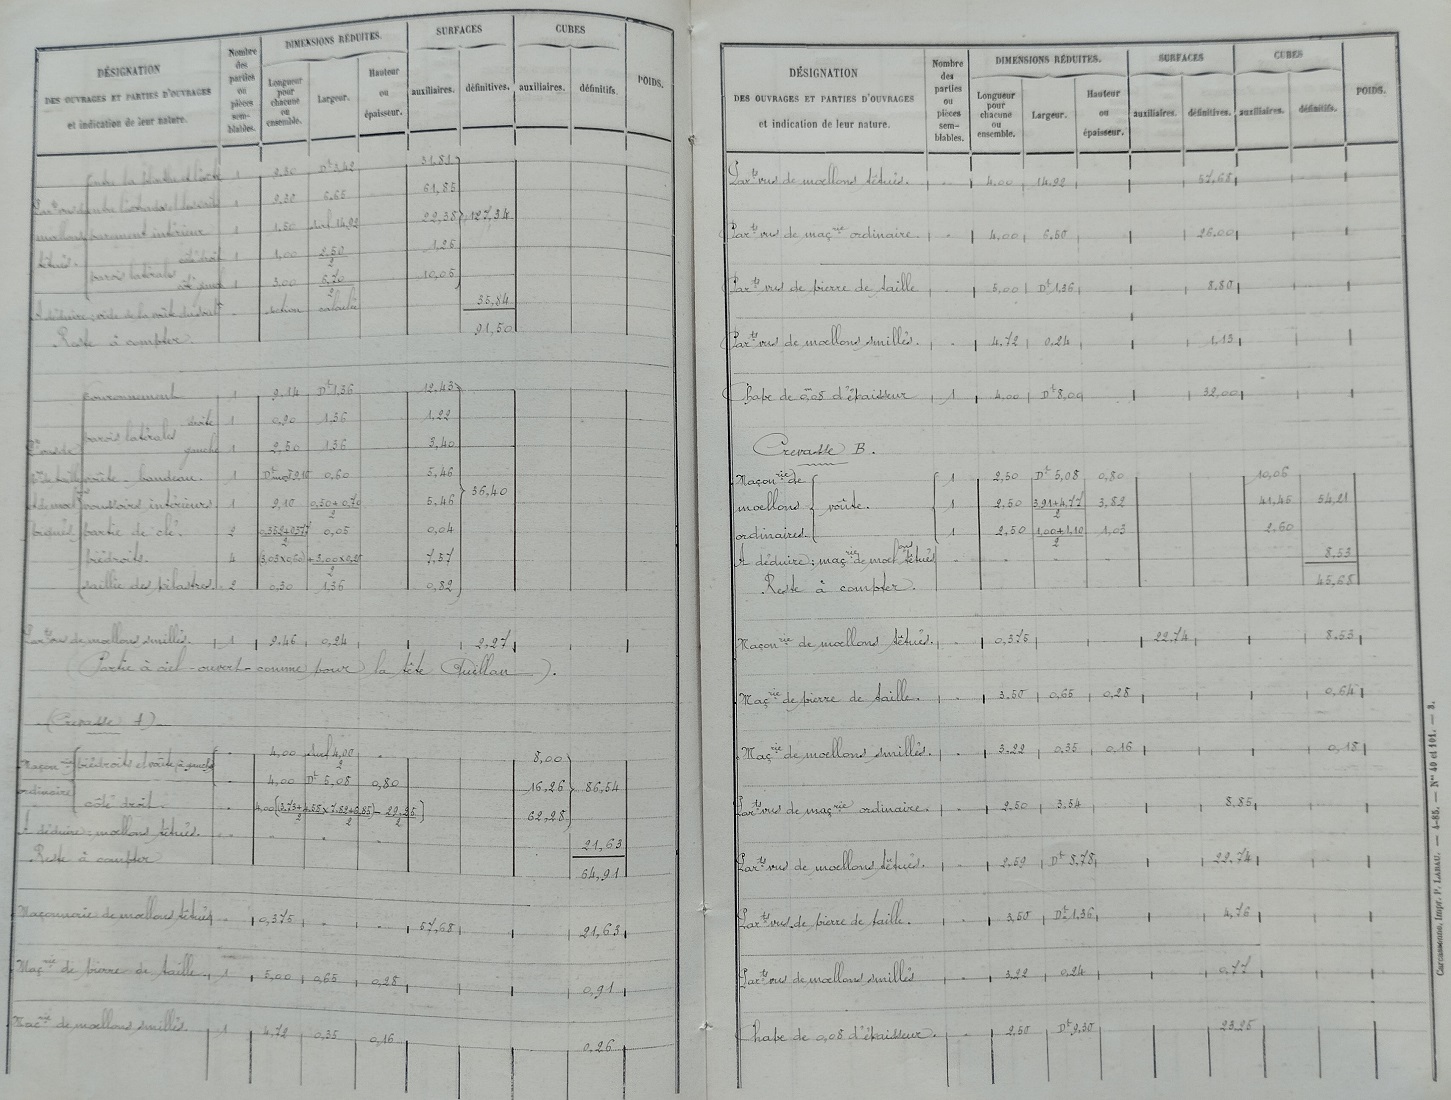 DÉSIGNATION
DES OUVRAGES ET PARTIES D'OUVRAGES
et indication de leur nature.
Nombre des parties ou pièces semblables.
DIMENSIONS RÉDUITES.
Longueur pour chacune ou ensemble.
Largeur.
Hauteur ou épaisseur.
SURFACES
auxiliaires.
définitives.
CUBES
auxiliaires.
définitifs.
POIDS.
1 2.30 Dt 3,42 31,81
1 9,30 6.65 61,85
moellons parement intérieur 1 1,50 22,38 127,34
têtués. côté droit 1 1,00 2.50/2 1,25
parois latérales 1 3.00 6.70/2 10,05
A déduire; vide de la voûte 35,84
Reste à compter 91,50
Couronnement 1 9,14 Dt 1,36 12,43
droite 1 0,90 1.36 1,22
parois latérales gauche 1 2,50 1.36 3,40
voûte. bandeau. 1 0,60 5,46
voussoirs intérieurs 1 9,10 0,50+0,70/2 5.46 36,40
partie de clé. 2 0,05 0,04
piédroits. 4 7,57
saillie des pilastres 2 0,30 1.36 0,82
Par.ts vus de moellons smillés. 1 9.46 0,24 2,27
(Partie à ciel-ouvert-comme pour la tête Quillan).
(Crevasse A)
Maçon.rie piédroits et voûte à gauche 4,00 8,00
ordinaire 4,00 Dt 5,08 0,80 16,26 86,54
côté droit. 62,28
A déduire; moellons têtués. 21,63
Reste à compter 64,91
Maçonnerie de moellons têtués 0,375 57,68 21,63
Maç.rie de pierre de taille. 1 5,00 0,65 0,28 0,91
Maç.rie de moellons smillés. 1 4,72 0,35 0,16 0,26
DÉSIGNATION
DES OUVRAGES ET PARTIES D'OUVRAGES
et indication de leur nature.
Nombre des parties ou pièces semblables.
DIMENSIONS RÉDUITES.
Longueur pour chacune ou ensemble.
Largeur.
Hauteur ou épaisseur.
SURFACES
auxiliaires.
définitives.
CUBES
auxiliaires.
définitifs.
POIDS.
Par.ts vus de moellons têtués. 4.00 14.92 57,68
Par.ts vus de maç.rie ordinaire. 4,00 6,50 26.00
Par.ts vus de pierre de taille 5,00 Dt 1,36 8,80
Par.ts vus de moellons smillés. 4,72 0,24 1,13
Chape de 0,m08 d'épaisseur 1 4,00 Dt 8,00 32,00
Crevasse B.
Maçon.rie de 1 2,50 Dt 5,08 0,80 10,06
moellons voûte. 1 2.50 3,91+4,77/2 3,82 41,45 54,21
ordinaires. 1 2,50 1,00+1,10/2 1,03 2.60
A déduire; maç.rie de moellons têtués 8.53
Reste à compter. 45,68
Maçon.rie de moellons têtués. 0,375 22.74 8.53
Maç.rie de pierre de taille. 3.50 0,65 0,28 0,64
Maç.rie de moellons smillés. 3,22 0,35 0,16 0,18
Par.ts vus de maç.rie ordinaire. 2.50 3,54 8,85
Par.ts vus de moellons têtués. 2.59 Dt 8,78 22,74
Par.ts vus de pierre de taille. 3,50 Dt 1,36 4,76
Par.ts vus de moellons smillés 3,22 0,24 0,77
Chape de 0,08 d'épaisseur. 2.50 Dt 9,30 23.25
Carcassonne, Impr. P. LABAU. — 4-85. — Nos 40 et 101. — 3.